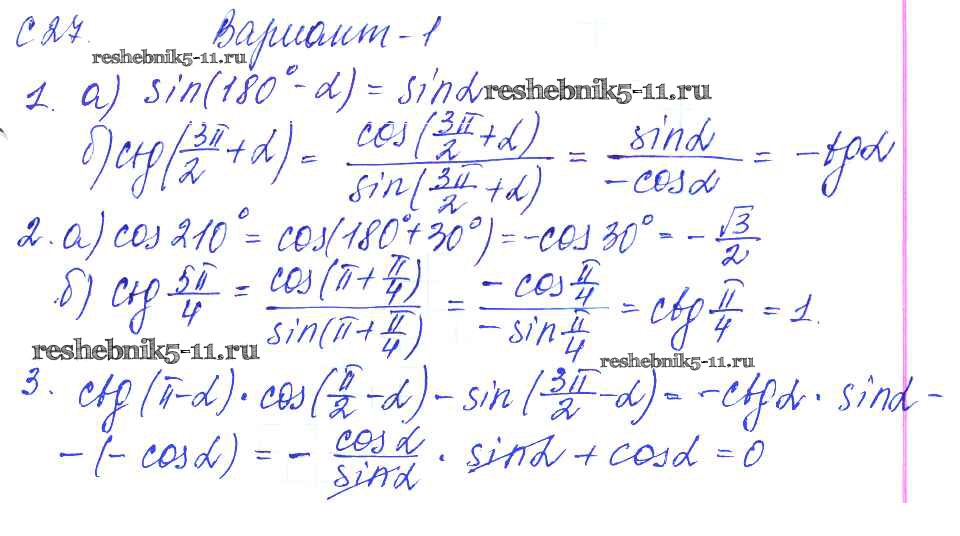 С 27. Вариант - 1
reshebnik5-11.ru
1. а) sin(180° - α) = sinα reshebnik5-11.ru
б) ctg(3π/2 + α) = cos(3π/2 + α) / sin(3π/2 + α) = sinα / -cosα = -tgα
2. а) cos 210° = cos(180° + 30°) = -cos 30° = - √3/2
б) ctg 5π/4 = cos(π + π/4) / sin(π + π/4) = -cos π/4 / -sin π/4 = ctg π/4 = 1.
reshebnik5-11.ru reshebnik5-11.ru
3. ctg(π - α) · cos(π/2 - α) - sin(3π/2 - α) = -ctgα · sinα -
- (- cosα) = - cosα / sinα · sinα + cosα = 0